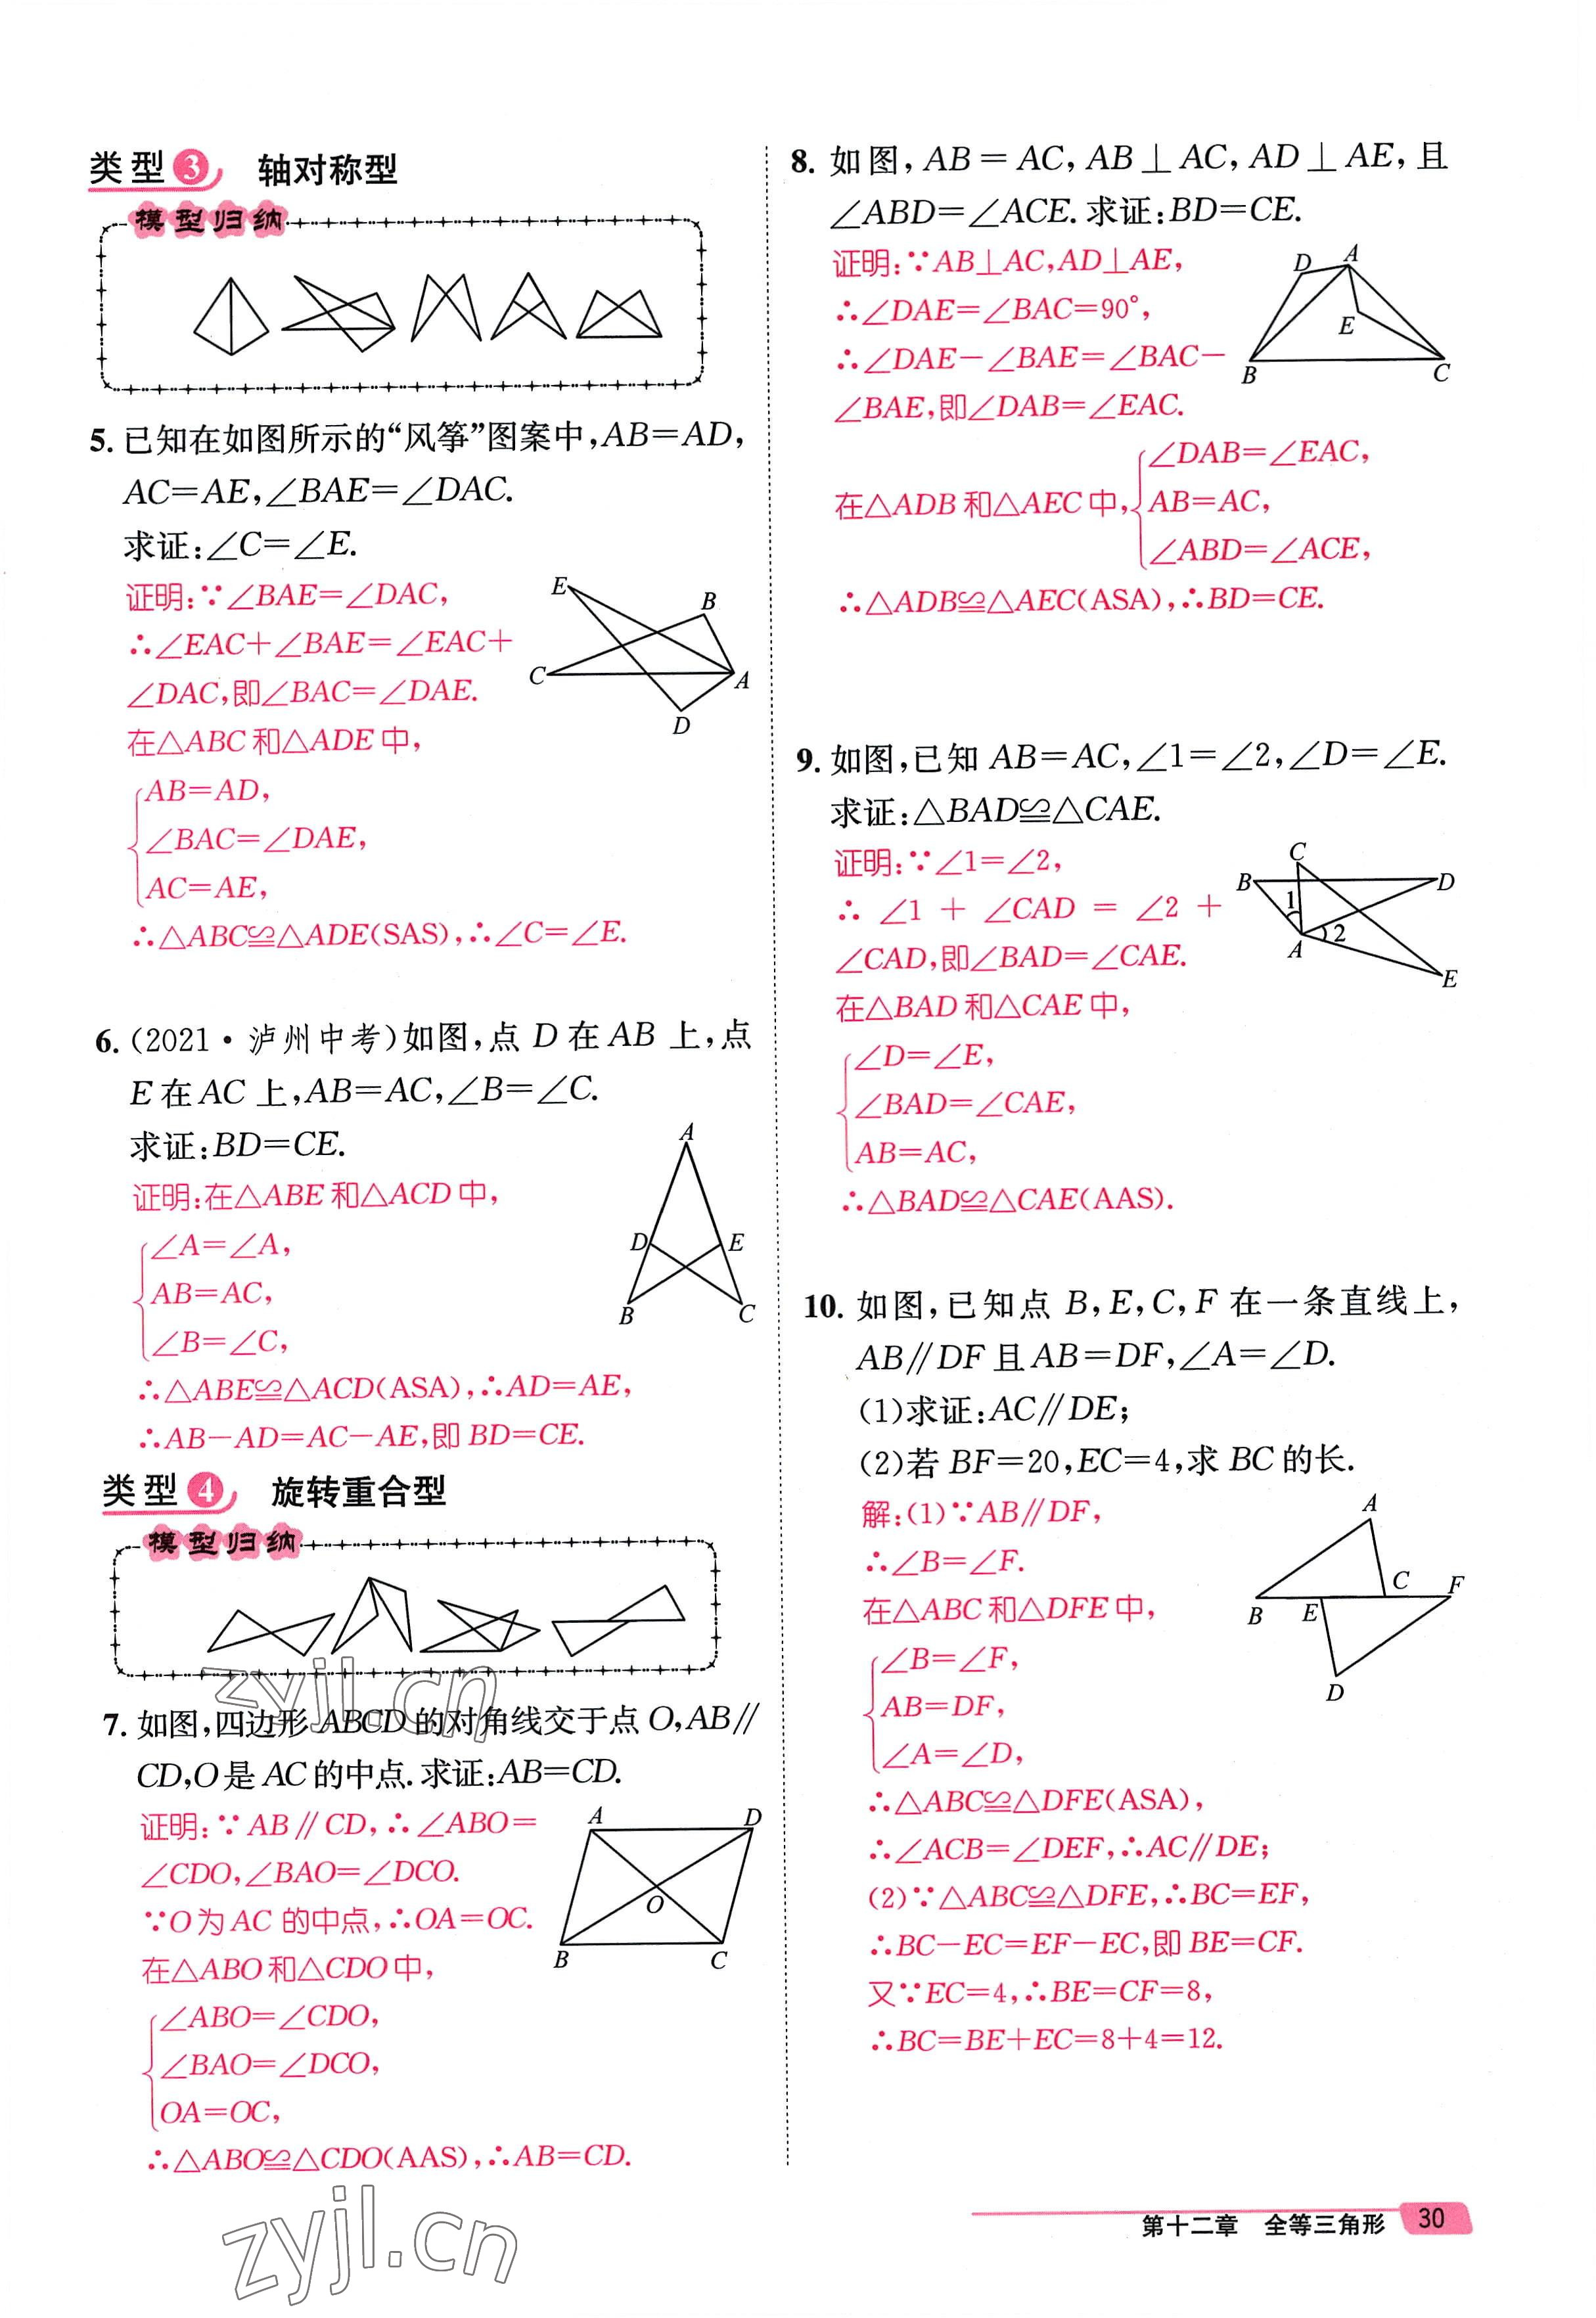 类型3 轴对称型
模型归纳
5. 已知在如图所示的“风筝”图案中,AB=AD,
AC=AE,∠BAE=∠DAC.
求证:∠C=∠E.
证明:∵∠BAE=∠DAC,
∴∠EAC+∠BAE=∠EAC+
∠DAC,即∠BAC=∠DAE.
在△ABC和△ADE中,
AB=AD,
∠BAC=∠DAE,
AC=AE,
∴△ABC≌△ADE(SAS),∴∠C=∠E.
E
B
C
A
D
6. (2021·泸州中考)如图,点D在AB上,点
E在AC上,AB=AC,∠B=∠C.
求证:BD=CE.
证明:在△ABE和△ACD中,
∠A=∠A,
AB=AC,
∠B=∠C,
∴△ABE≌△ACD(ASA),∴AD=AE,
∴AB-AD=AC-AE,即BD=CE.
A
D E
B C
类型4 旋转重合型
模型归纳
7. 如图,四边形ABCD的对角线交于点O,AB∥
CD,O是AC的中点.求证:AB=CD.
证明:∵AB∥CD,∴∠ABO=
∠CDO,∠BAO=∠DCO.
∵O为AC的中点,∴OA=OC.
在△ABO和△CDO中,
∠ABO=∠CDO,
∠BAO=∠DCO,
OA=OC,
∴△ABO≌△CDO(AAS),∴AB=CD.
A D
O
B C
8. 如图,AB=AC,AB⊥AC,AD⊥AE,且
∠ABD=∠ACE.求证:BD=CE.
证明:∵AB⊥AC,AD⊥AE,
∴∠DAE=∠BAC=90°,
∴∠DAE-∠BAE=∠BAC-
∠BAE,即∠DAB=∠EAC.
∠DAB=∠EAC,
在△ADB和△AEC中, AB=AC,
∠ABD=∠ACE,
∴△ADB≌△AEC(ASA),∴BD=CE.
D A
E
B C
9. 如图,已知AB=AC,∠1=∠2,∠D=∠E.
求证:△BAD≌△CAE.
证明:∵∠1=∠2,
∴∠1+∠CAD=∠2+
∠CAD,即∠BAD=∠CAE.
在△BAD和△CAE中,
∠D=∠E,
∠BAD=∠CAE,
AB=AC,
∴△BAD≌△CAE(AAS).
C
B D
1
2
A
E
10. 如图,已知点B,E,C,F在一条直线上,
AB∥DF且AB=DF,∠A=∠D.
(1)求证:AC∥DE;
(2)若BF=20,EC=4,求BC的长.
解:(1)∵AB∥DF,
∴∠B=∠F.
在△ABC和△DFE中,
∠B=∠F,
AB=DF,
∠A=∠D,
∴△ABC≌△DFE(ASA),
∴∠ACB=∠DEF,∴AC∥DE;
(2)∵△ABC≌△DFE,∴BC=EF,
∴BC-EC=EF-EC,即BE=CF.
又∵EC=4,∴BE=CF=8,
∴BC=BE+EC=8+4=12.
A
C F
B E
D
zyjl.cn
zyjl.cn
第十二章 全等三角形 30